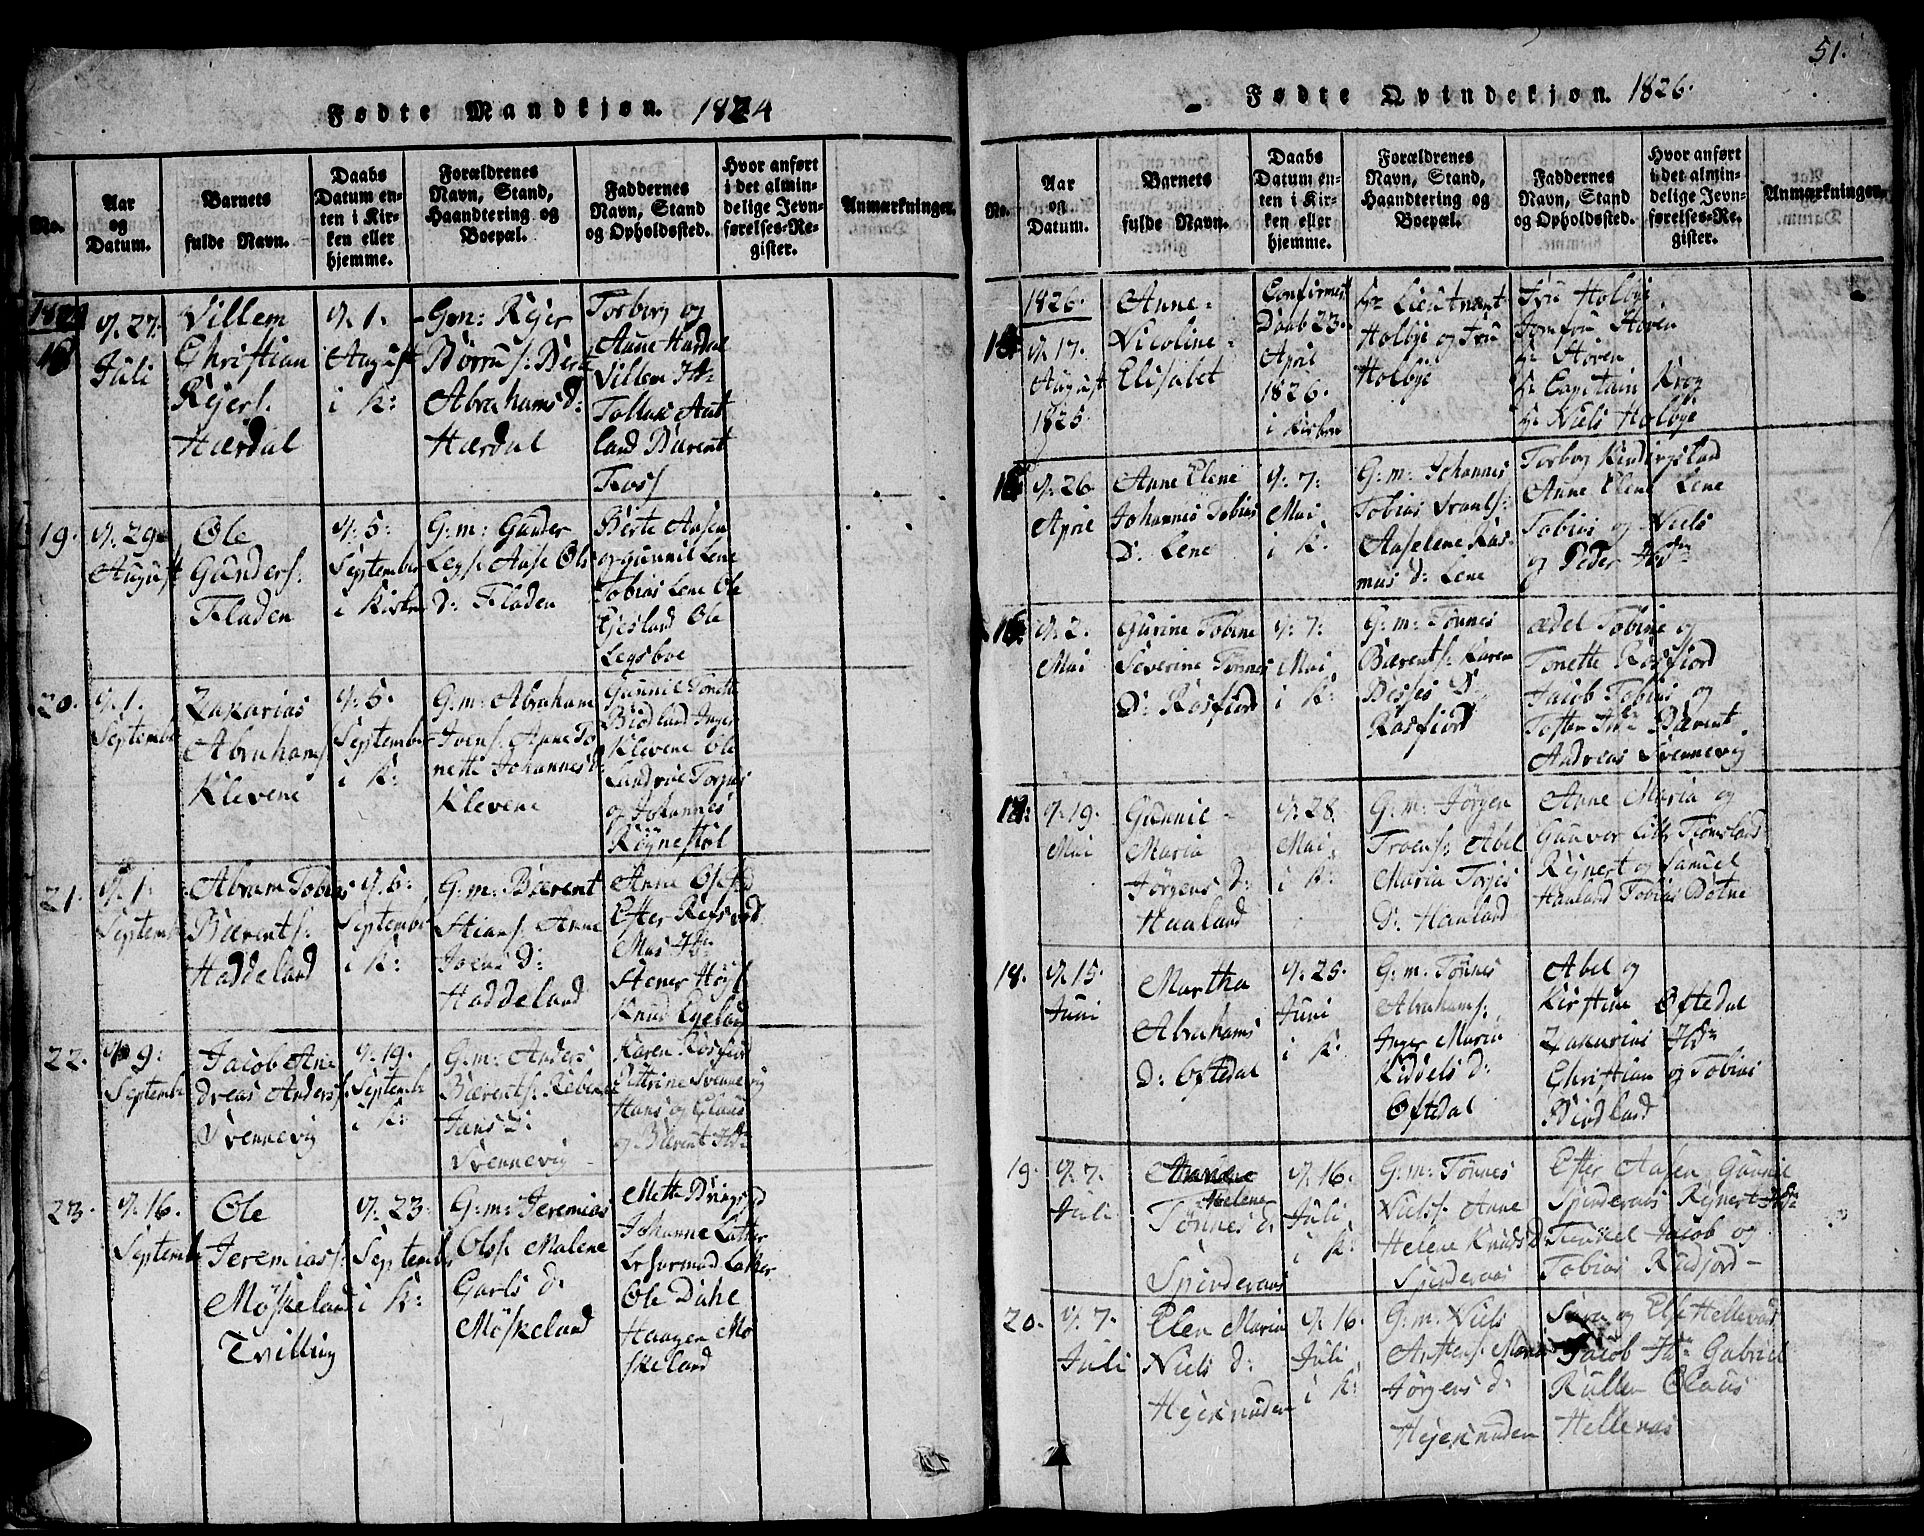 51.
Fødte Mandkjøn. 1824
No.
Aar
og
Datum.
Barnets
fulde Navn.
Daabs
Datum en-
ten i Kir-
ken eller
hjemme.
Forældrenes
Navn, Stand,
Haandtering og
Boepæl.
Faddernes
Navn, Stand
og Opholdssted.
Hvor anført
i det almin-
delige Jevn-
førelses-Re-
gister.
Anmærkninger.
q. 27.
Juli
Villem
Christian
Rejers.
Hærdal
q. 1.
August
i K:
G:m: Rejer
Børrus: Berte
Abrahams d:
Hærdal
Torborg og
Anne Hærdal
Villem Hdn
Tollas Aut
land Bærent
Foss
19.
q. 29
August
Ole
Gunders:
Fladen
q. 5:
September
i Kirken
G:m: Gunder
Legs: Aase Ols
d: Fladen
Berte Aasen
og Gunnil Lene
Tobias Lene Ole
Egeland Ole
Legsboe
20.
q. 1.
September
Zakarias
Abrahams
Klevene
q. 5.
September
i K:
G:m: Abraham
Joens: Anne To
nette Johannes d:
Klevene
Gunnil Tonette
Biodland Inger
Klevene Ole
Landrøe Torjus
og Johannes
Røynestøl
21.
q. 1.
September
Abram Tobias
Bærents:
Haddeland
q. 5.
September
i K:
G:m: Bærent
Stians: Anne
Joens D:
Haddeland
Anne Ofsted
Efter Refsved
Mas Hdn
Stener Høys
Knud Egeland
22.
q. 9:
September
Jacob An
dreas Anders:
Svennevig
q. 19.
September
i K:
G:m: Anders
Bærents: Rebecca
Jans D:
Svennevig
Karen Rosfiord
Pettrine Svennevig
Hans og Claus
og Bærent Hdn
23.
q. 16.
September
Ole
Jeremias:
Møskeland
Tvilling
q. 23.
September
i K:
G:m: Jeremias
Ols: Malene
Carls d:
Møskeland
Mette
Johanne Latter
Ole Dahl
Haagen Mø
skeland
Fødte Qvindekjøn. 1826.
No.
Aar
og
Datum.
Barnets
fulde Navn.
Daabs
Datum en-
ten i Kir-
ken eller
hjemme.
Forældrenes
Navn, Stand,
Haandtering og
Boepæl.
Faddernes
Navn, Stand
og Opholdssted.
Hvor anført
i det almin-
delige Jevn-
førelses-Re-
gister.
Anmærkninger.
1826.
q. 17.
August
1825.
Anne
Nicoline
Elisabet
Confirmert
Daab 23.
April
1826.
i Kirken
Hr Lieutnant
Holbye og Fru
Holbye
Fru Holbye
Jomfru Støren
Hr Støren
Hr Capitain Krog
Hr Niels Holbye
q. 26
April
Anne Elene
Johannes Tobias
D: Lene
q. 7:
Mai
i K:
G:m: Johannes
Tobias Svents:
Aaselene Ras
mus d: Lene
Torborg Kindingsland
Anne Elene Lene
Tobias og Niels
og Peder Hdn
q. 2.
Mai
Gurine Tobine
Severine Tønnes
D: Rosfiord
q. 7:
Mai
i K:
G:m: Tønnes
Bærents: Karen
Besses D:
Rosfiord
Ædel Tobine og
Tonette Rosfiord
Jacob Tobias og
Toften Hdn Bærent
Andreas Svennevig
q. 19.
Mai
Gunnil
Maria
Jørgens d:
Haaland
q. 28.
Mai
i K:
G:m: Jørgen
Troens: Abel
Maria Torjes
D: Haaland
Anne Maria og
Gunvor Lille Tiomsland
Rejnert og Samuel
Haaland Tobias Botne
18.
q. 15.
Juni
Martha
Abrahams
D: Oftedal
q. 25.
Juni
i K:
G:m: Tønnes
Abrahams:
Inger Maria
Kiddels d:
Oftedal
Abel og
Kirstine Oftedal
Zakarias Hdn
Christian og Tobias
Biodland
19.
q. 7.
Juli
Helene
Tønnes d:
Spinderaas
q. 16.
Juli
i K:
G:m: Tønnes
Niels: Anne
Helene Knuds D
Spinderaas
Efter Aasen Gunnil
Spinderaas Rejnert Hdn
Tenkel Jacob og
Tobias Rudjord
20.
q. 7.
Juli
Elen Maria
Niels d:
Hejeknuden
q. 16.
Juli
i K:
G:m: Niels
Antens: Maria
Jørgens d:
Hejeknuden
Siren og Else Hellevas
Jacob Hdn Gabriel
Rullen Claus
Hellevas